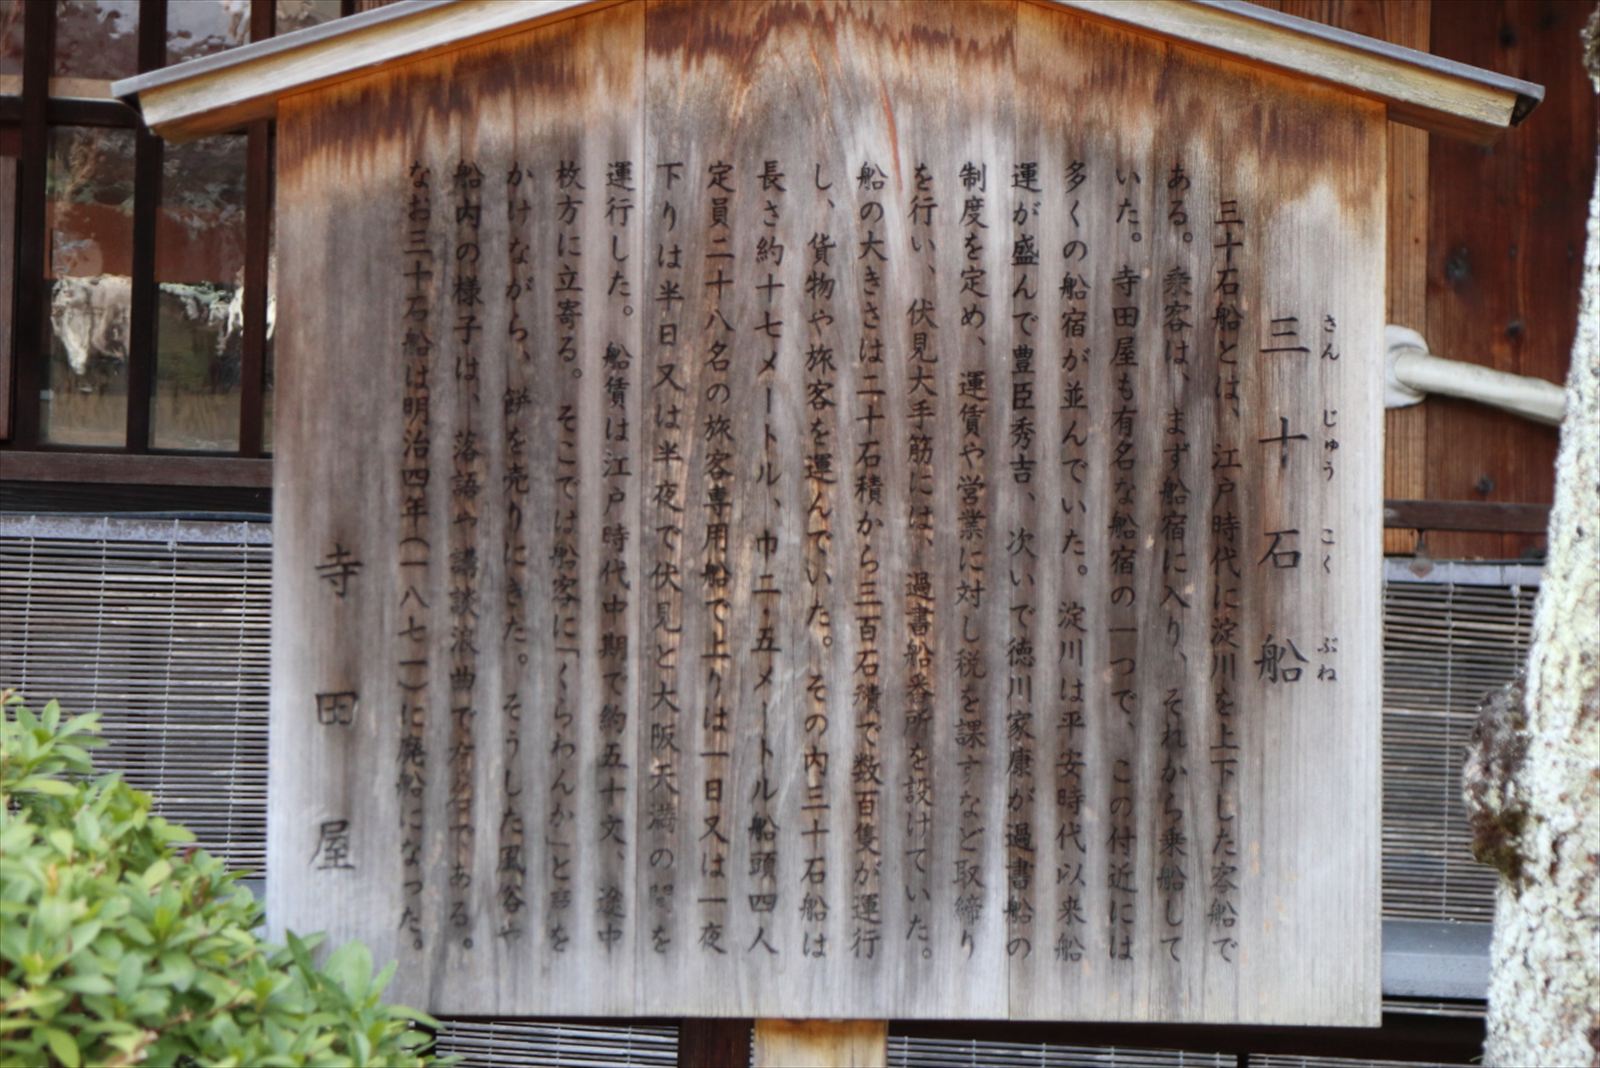 三十石船
さんじゅうこくぶね
三十石船とは、江戸時代に淀川を上下した客船で
ある。乗客は、まず船宿に入り、それから乗船して
いた。寺田屋も有名な船宿の一つで、この付近には
多くの船宿が並んでいた。淀川は平安時代以来船
運が盛んで豊臣秀吉、次いで徳川家康が過書船の
制度を定め、運賃や営業に対し税を課すなど取締り
を行い、伏見大手筋には、過書船番所を設けていた。
船の大きさは二十石積から三百石積で数百隻が運行
し、貨物や旅客を運んでいた。その内三十石船は
長さ約十七メートル、巾二・五メートル船頭四人
定員二十八名の旅客専用船で上りは一日又は一夜
下りは半日又は半夜で伏見と大阪天満の間を
運行した。船賃は江戸時代中期で約五十文、途中
枚方に立寄る。そこでは船客に「くらわんか」と声を
かけながら、餅を売りにきた。そうした風俗や
船内の様子は、落語や講談浪曲で有名である。
なお三十石船は明治四年(一八七一)に廃船になった。
寺田屋